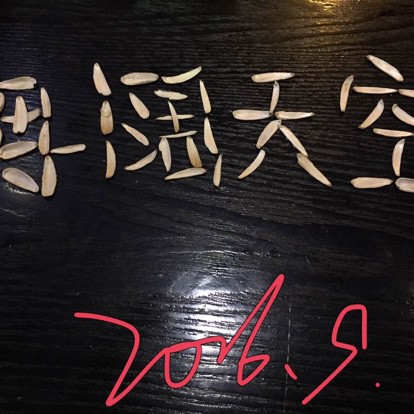 海阔天空
2016.9.